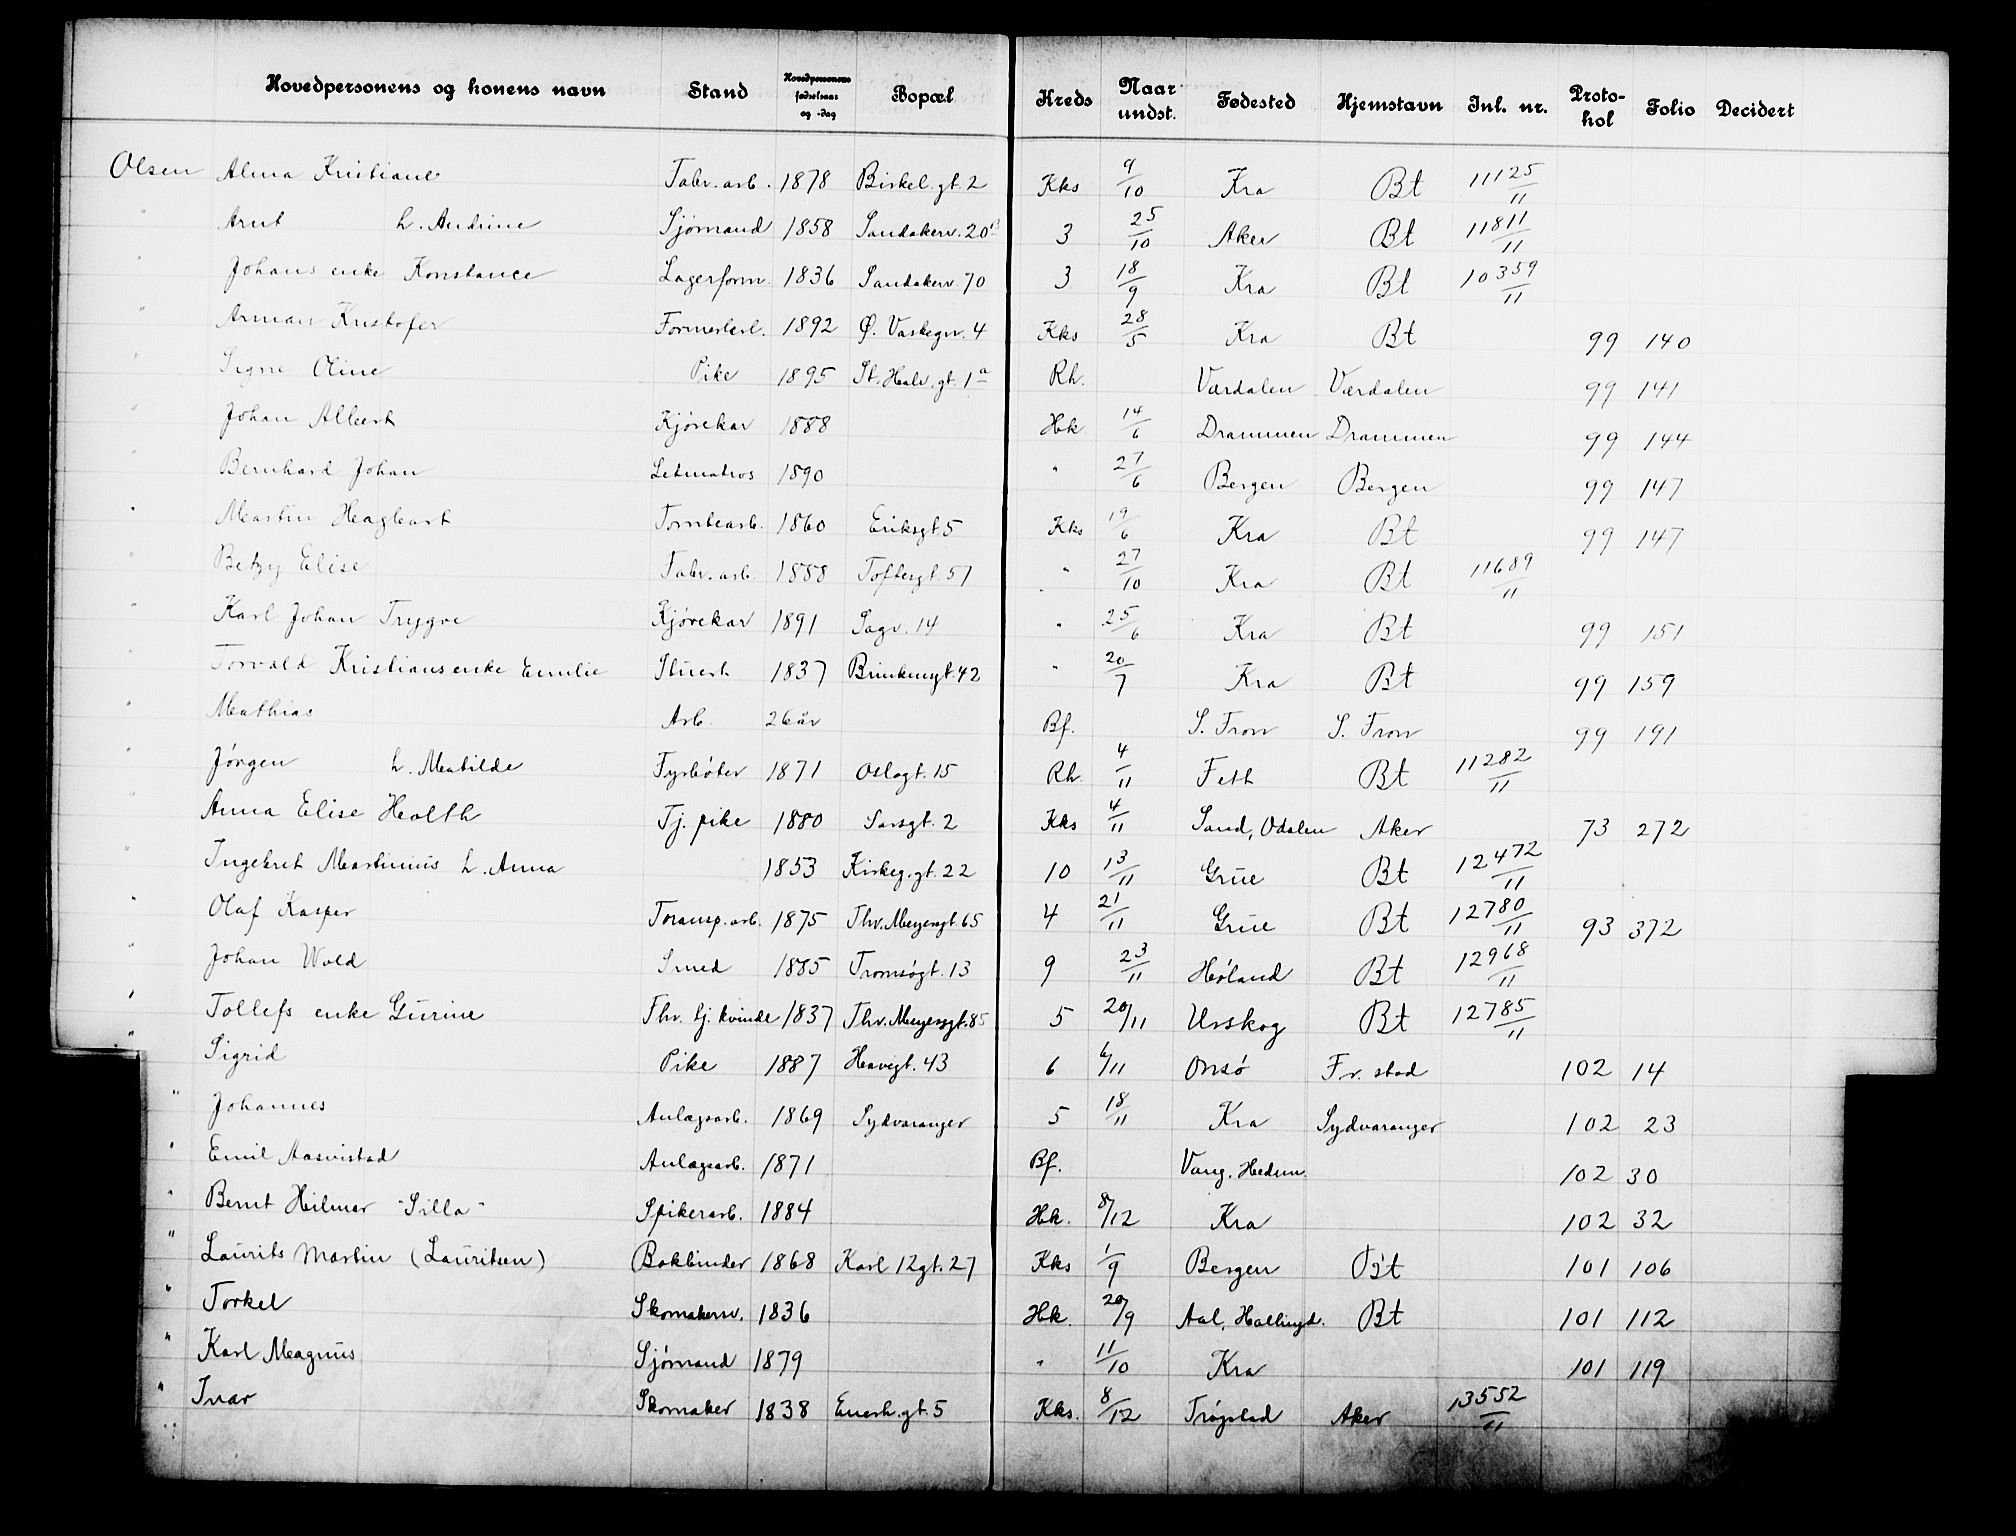 Hovedpersonens og konens navn Stand Hovedpersonens fødselsaar og -dag Bopæl Kreds Naar undst. Fødested Hjemstavn Inl. nr. Proto-kol Folio Decidert
Olsen Alma Kristiane Fabr. arb. 1878 Birkel. gt. 2 Kks 9/10 Kra Bt 11125/11
" Arnt h. Andrine Sjømand 1858 Sandakerv. 20B 3 25/10 Aker Bt 11811/11
Johans enke Konstance Lagerform. 1836 Sandakerv. 70 3 18/9 Kra Bt 10359/11
" Arman Kristofer Formerlærl. 1892 Ø. Vaskegn. 4 Kks 28/5 Kra Bt 99 140
" Signe Oline Pike 1895 St. Halv. gt. 1a Rh. Værdalen Værdalen 99 141
" Johan Albert Kjørekar 1888 Hk. 14/6 Drammen Drammen 99 144
Bernhard Johan Letmatros 1890 " 27/6 Bergen Bergen 99 147
" Martin Hagbart Tomtearb. 1860 Eriksgt. 5 Kks 19/6 Kra Bt 99 147
" Betzy Elise Fabr. arb. 1888 Toftesgt. 57 " 27/10 Kra Bt 11689/11
" Karl Johan Trygve Kjørekar 1891 Sagv. 14 " 25/6 Kra Bt 99 151
" Torvald Kristians enke Emilie Stuert 1837 Brinkengt. 42 " 20/7 Kra Bt 99 159
" Mathias Arb. 26 år Bf. S. Fron S. Fron 99 191
" Jörgen h. Matilde Fyrbøter 1871 Oslogt. 15 Rh. 4/11 Feth Bt 11282/11
" Anna Elise Holth Tj. pike 1880 Sarsgt. 2 Kks 4/11 Sand, Odalen Aker 73 272
" Ingebret Martinius h. Anna 1853 Kirkeg. gt. 22 10 13/11 Grue Bt 12472/11
" Olaf Kasper Transp. arb. 1875 Thv. Meyersgt. 65 4 21/11 Grue Bt 12780/11 93 372
" Johan Wold Smed 1885 Tromsøgt. 13 9 23/11 Høland Bt 12968/11
" Tollefs enke Gurine Fhv. tj. kvinde 1837 Thv. Meyersgt. 85 5 20/11 Urskog Bt 12785/11
" Sigrid Pike 1887 Havegt. 43 6 6/11 Onsø Fr. stad 102 14
" Johannes Anlægsarb. 1869 Sydvaranger 5 18/11 Kra Sydvaranger 102 23
" Emil Aasvistad Anlægsarb. 1871 Bf. Vang, Hedm. 102 30
" Bernt Hilmar "Silla" Spikerarb. 1884 Hk. 8/12 Kra 102 32
" Laurits Martin (Lauritsen) Bokbinder 1868 Karl 12gt. 27 Kks 1/9 Bergen Bt 101 106
" Torkel Skomakersv. 1836 Hk. 20/9 Aal, Hallingd. Bt 101 112
" Karl Magnus Sjømand 1879 " 11/10 Kra 101 119
" Ivar Skomaker 1838 Enerh. gt. 5 Kks. 8/12 Trøgstad Aker 13552/11